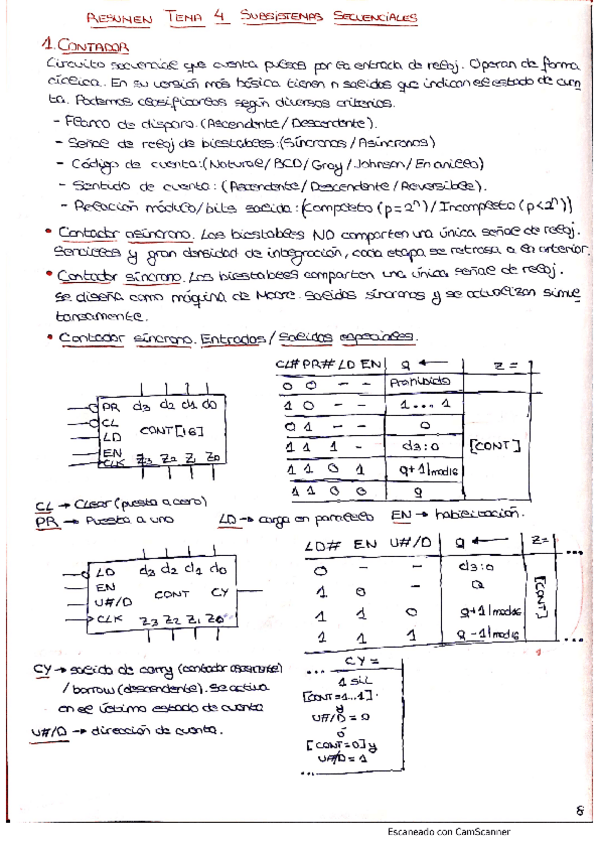 RESUMEN TEMA 4 SUBSISTEMAS SECUENCIALES
1. CONTADOR
Circuito secuencial que cuenta pulsos por la entrada de reloj. Operan de forma
cíclica. En su versión más básica tienen n salidas que indican el estado de cuen
ta. Podemos clasificarlos según diversos criterios.
- Flanco de disparo. (Ascendente / Descendente).
- Señal de reloj de biestables: (Síncronos / Asíncronos)
- Código de cuenta: (Natural / BCD / Gray / Johnson / En anillo)
- Sentido de cuenta: (Ascendente / Descendente / Reversible).
- Relación módulo/bits salida: (Completo (p=2ⁿ) / Incompleto (p<2ⁿ))
• Contador asíncrono. Los biestables NO comparten una única señal de reloj.
Sencillos y gran densidad de integración, cada etapa se retrasa a la anterior.
• Contador síncrono. Los biestables comparten una única señal de reloj.
Se diseña como máquina de Moore. Salidas síncronas y se actualizan simul
táneamente.
• Contador síncrono. Entradas / Salidas especiales.
CL# PR# LD EN | q ← | z =
0 0 - - | Prohibido
1 0 - - | 1...1
0 1 - - | 0
1 1 1 - | d3:0 | [CONT]
1 1 0 1 | q+1|mod16
1 1 0 0 | q
PR d3 d2 d1 d0
CL
LD CONT[16]
EN
CLK z3 z2 z1 z0
CL → Clear (puesta a cero)
PR → Puesta a uno LD → carga en paralelo EN → habilitación.
LD d3 d2 d1 d0
EN CONT CY
U#/D
CLK z3 z2 z1 z0
LD# EN U#/D | q ← | z= | ...
0 - - | d3:0
1 0 - | q | [CONT]
1 1 0 | q+1|mod16
1 1 1 | q-1|mod16 | ...
CY → salida de carry (contador ascendente)
/ borrow (descendente). Se activa
en el último estado de cuenta
U#/D → dirección de cuenta.
... CY =
1 si
[CONT=1..1]
y
U#/D = 0
ó
[CONT=0] y
U#/D = 1
...
8
Escaneado con CamScanner